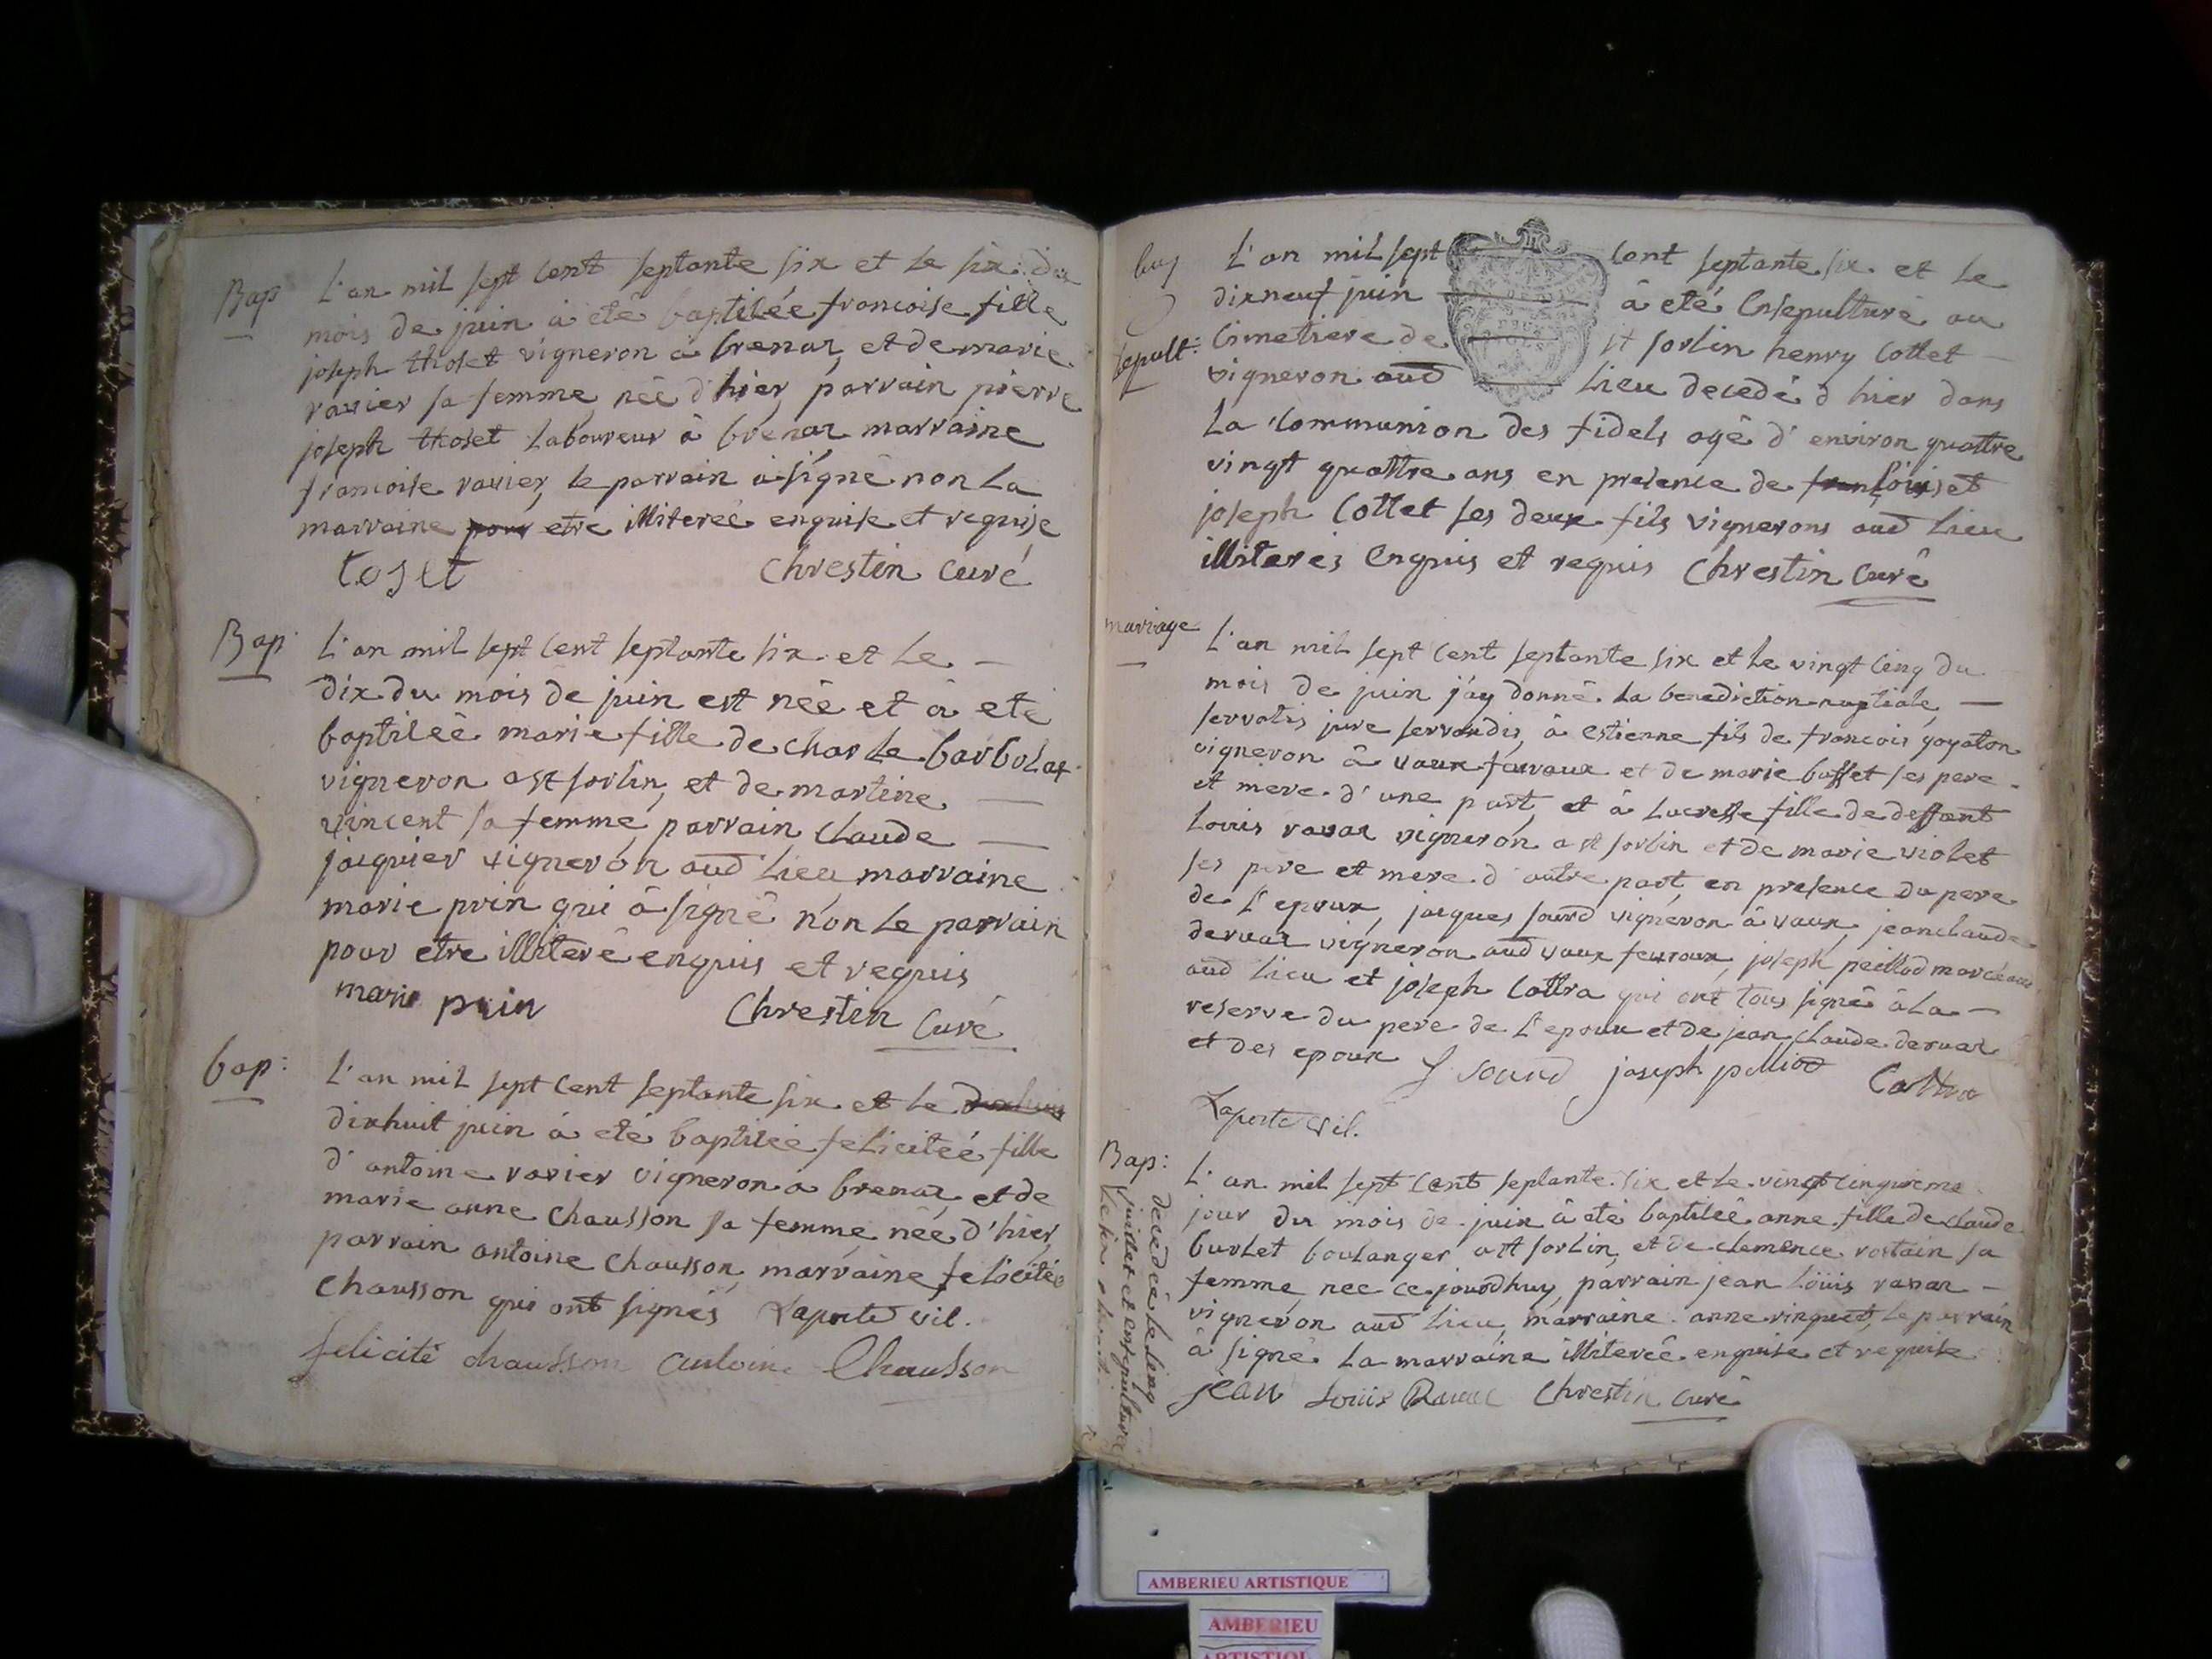 Bap
L'an mil sept cent septante six et le six du
mois de juin à eté baptisée francoise fille
joseph thoset vigneron a brenaz et de marie
ravier sa femme née d'hier, parrain pierre
joseph thoset laboureur à brenaz marraine
francoise ravier, le parrain à signé non la
marraine pour etre illiterée enquise et requise
toset Chrestin curé
Bap
L'an mil sept cent septante six et le
dix du mois de juin est née et à eté
baptisée marie fille de charle barbolat
vigneron a st sorlin, et de martine
vincent sa femme, parrain claude
jacquier vigneron aud lieu marraine
marie prin qui à signé non le parrain
pour etre illiteré enquis et requis
marie prin Chrestin curé
bap:
L'an mil sept cent septante six et le
dixhuit juin à eté baptisée felicitée fille
d'antoine ravier vigneron a brenaz, et de
marie anne chausson sa femme, née d'hier,
parrain antoine chausson, marraine felicitée
chausson qui ont signés Laporte vic.
felicité chausson antoine Chausson
sepult:
L'an mil sept cent septante six et le
dixneuf juin à eté ensepulturé au
cimetiere de st sorlin henry cottet
vigneron aud lieu decedé d'hier dans
la communion des fidels agé d'environ quattre
vingt quattre ans en presence de et
joseph cottet ses deux fils vignerons aud lieu
illiterés enquis et requis Chrestin curé
marriage
L'an mil sept cent septante six et le vingt cinq du
mois de juin j'ay donné la benediction nuptiale,
servatis jure servandis, à estienne fils de francois goyaton
vigneron à vaux fevroux et de marie buffet ses pere
et mere d'une part, et à lucresse fille de deffunt
louis ravaz vigneron a st sorlin et de marie violet
ses pere et mere d'autre part, en presence du pere
de l'epoux, jacques sourd vigneron à vaux, jeanclaude
dervaz vigneron aud vaux fevroux, joseph peillod marechal
aud lieu et joseph cottra qui ont tous signé à la
reserve du pere de l'epoux et de jean claude dervaz
et des epoux J sourd joseph pelliod Cottra
Laporte vic.
Bap:
L'an mil sept cent septante six et le vingt cinquieme
jour du mois de juin à eté baptisée anne fille de claude
burlet boulanger a st sorlin, et de clemence rostain sa
femme, née ce jourdhuy, parrain jean louis ravaz
vigneron aud lieu, marraine anne vinquet, le parrain
à signé la marraine illiterée enquise et requise
jean Louis Ravaz Chrestin curé
decedée le cinq
juillet et ensepulturée
AMBERIEU ARTISTIQUE
AMBERIEU
ARTISTIQUE